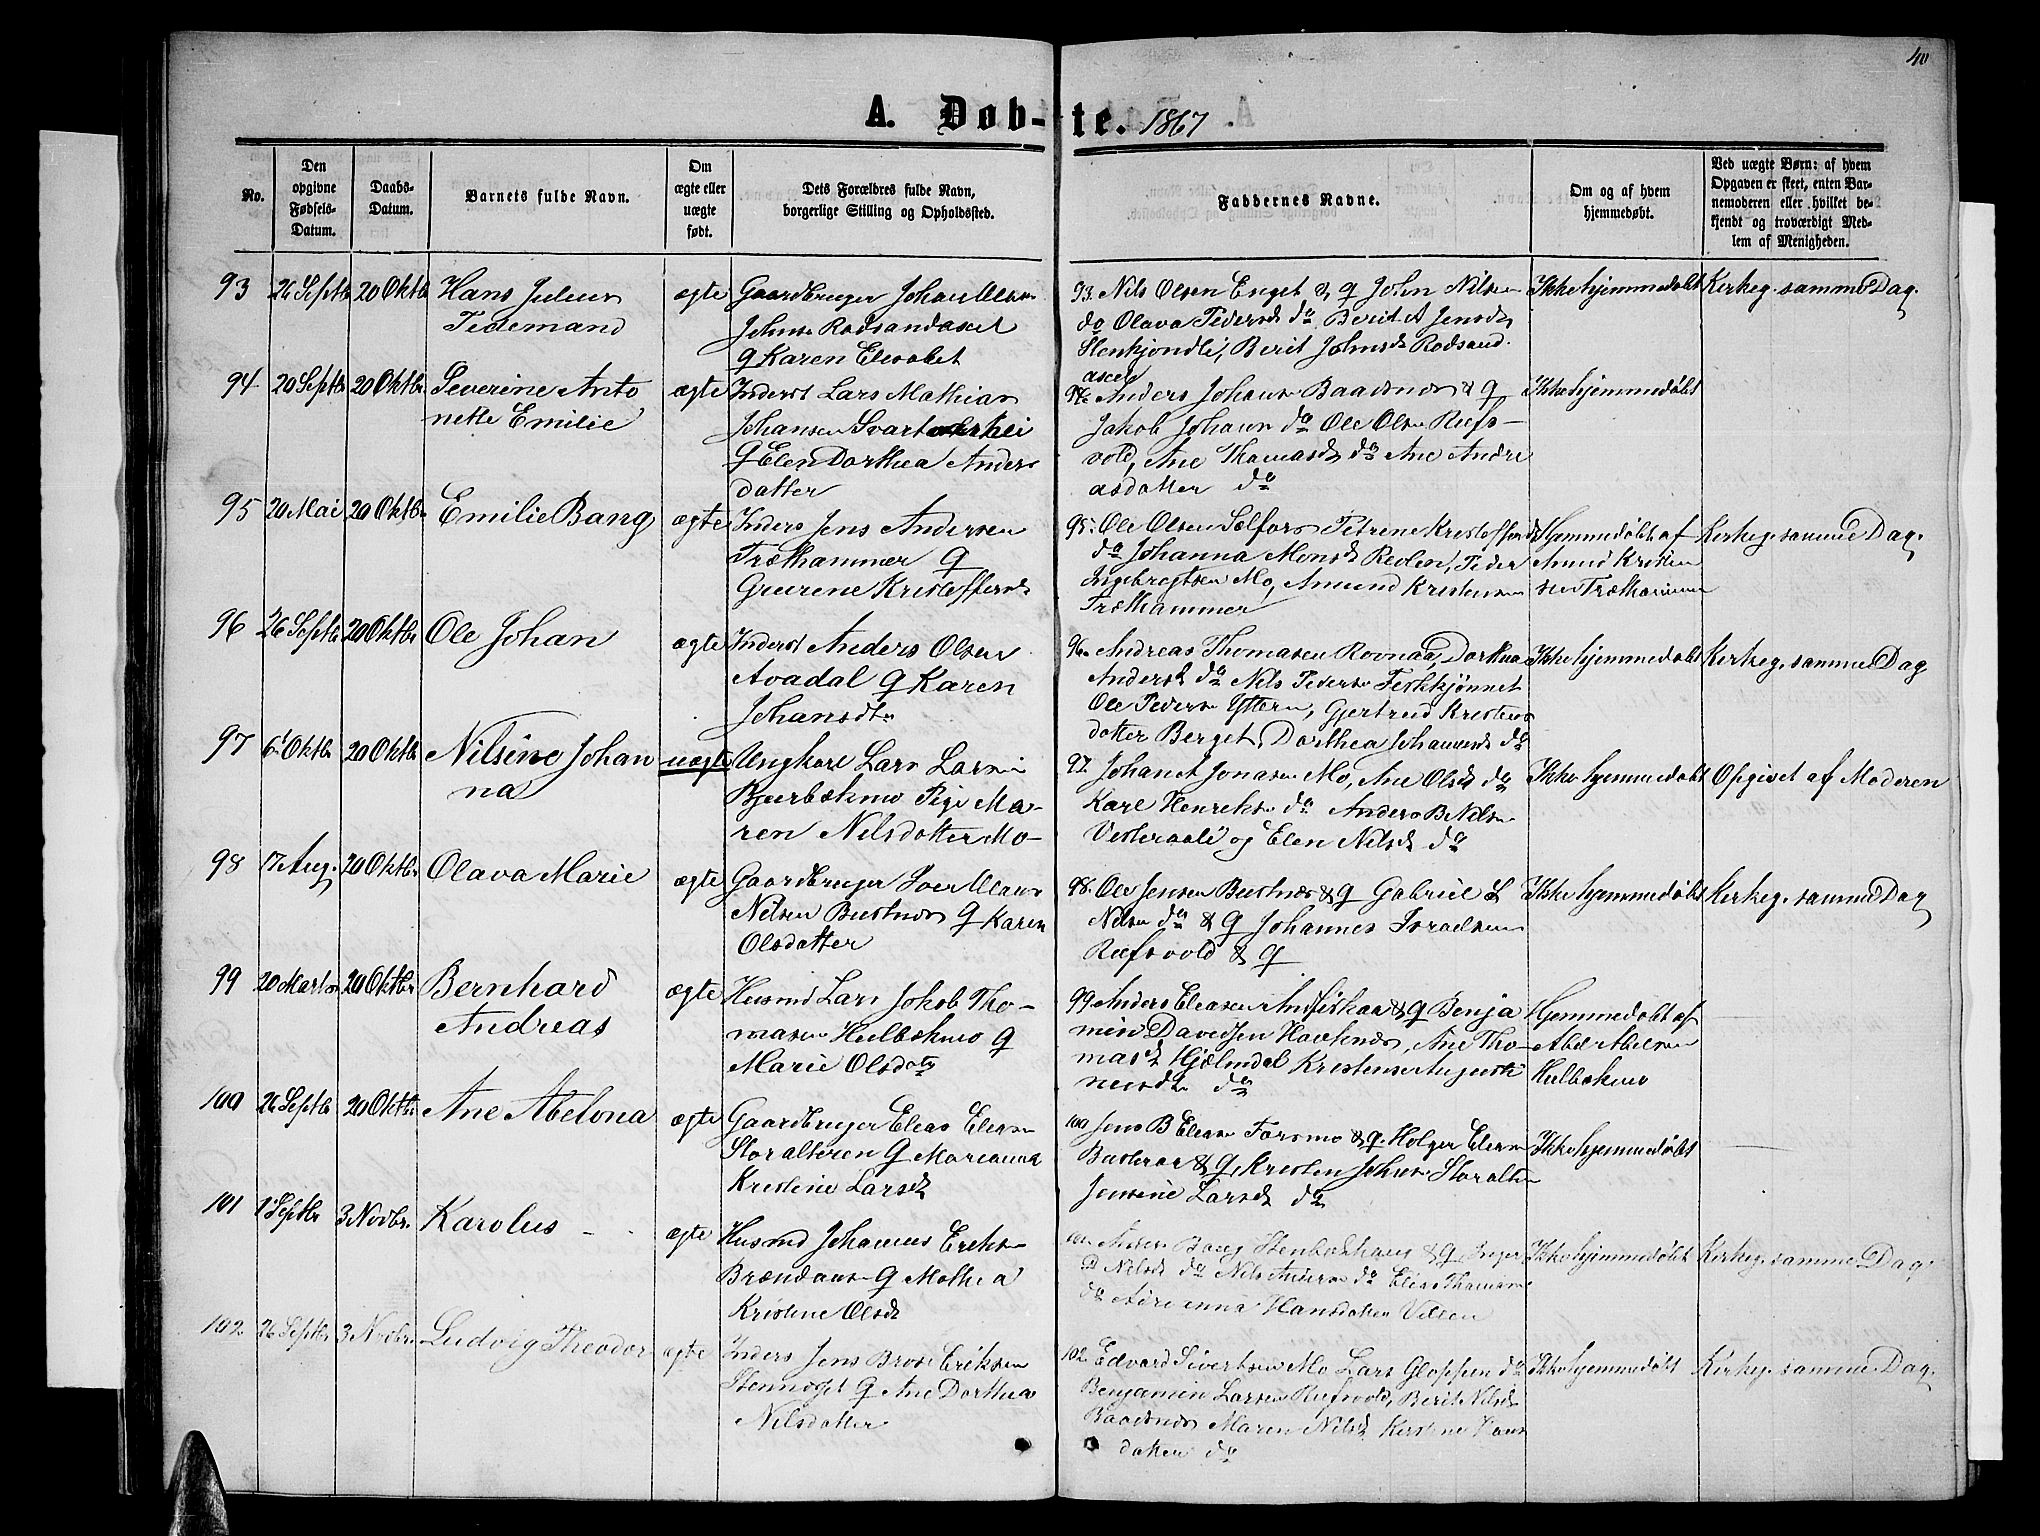 40
A. Døb-te. 1867
No.
Den opgivne Fødsels-Datum.
Daabs-Datum.
Barnets fulde Navn.
Om ægte eller uægte født.
Dets Forældres fulde Navn, borgerlige Stilling og Opholdssted.
Faddernes Navne.
Om og af hvem hjemmedøbt.
Ved uægte Børn: af hvem Opgaven er skeet, enten Barnemoderen eller hvilket bekjendt og troværdigt Medlem af Menigheden.
93 26 Septbr 20 Oktbr Hans Julius
Tidemand
ægte
Gaardbruger Johan
Johns Rodsandaxel
q Karen Elisabet
93. Nils Olsen Enget & q John Nilsen
do Olava Pedersd do Berit A Jensd
Stenkjondli, Berit Johnsd Rodsand
axel
Ikke hjemmedøbt
Kirkeg. samme Dag.
94 20 Septbr 20 Oktbr Severine Anto
nette Emilie
ægte
Inderst Lars Mathias
Johansen
q Elen Dorthea Anders
datter
94. Anders Johans Baadsnes & q
Jakob Johans do Ole Olsen Ræfs-
vold, Ane Thomasd do Ane Andre
asdatter do
Ikke hjemmedøbt
95 20 Mai 20 Oktbr Emilie Bang
ægte
Inders Jens Andersen
Træthammer q
Gurine Kristoffersd
95. Ole Olsen Selfors Petrine Kristoffersd
do Johanna Monsd Revlen, Peder
Ingebregtsen Mo, Amund Kristensen
Træthammer
Hjemmedøbt af
Amund Kristen
sen Træthammer
Kirkeg. samme Dag.
96 26 Septbr 20 Oktbr Ole Johan
ægte
Inderst Anders Olsen
Avadal q Karen
Johansdtr
96. Andreas Thomasen Rovnaa, Dorthea
Andersd do Nils Peders
Ole Peders Ytteren, Gjertrud Kristens
datter Berget, Dorthea Johannesd do
Ikke hjemmedøbt
Kirkeg. samme Dag
97 6 Oktbr 20 Oktbr Nilsine Johan
na
uægte
Ungkarl Lars Larsen
Bjerbækmo Pige Ma-
ren Nilsdatter Mo-
97. Johan A Jonasen Mo, Ane Olsd do
Karl Henriks do Anders B Nilsen
Vesteraali og Elen Nilsd do
Ikke hjemmedøbt
Opgivet af Moderen
98 17 Aug. 20 Oktbr Olava Marie
ægte
Gaardbruger Iver Olaus
Nilsen Bustnes q Karen
Olsdatter
98. Ole Jensen Bustnes & q Gabriel L
Nilsen do & q Johannes Israelsen
Ræfsvold & q
Ikke hjemmedøbt
Kirkeg. samme Dag
99 20 Marts 20 Oktbr Bernhard
Andreas
ægte
Husmd Lars Jakob Tho-
masen Hulbækmo q
Marie Olsdatr
99. Anders Eleasen Andfiskaa & q Benja
min Davidsen Hauknes, Ane Tho-
masd Hjelmdal Kristense Augusti
nusdtr do
Hjemmedøbt af
Abel Abelsen
Hulbækmo
100 26 Septbr 20 Oktbr Ane Abelona
ægte
Gaardbruger Elias Eliasen
Storalteren q Marianna
Kristine Larsd
100 Jens B Eliasen Forsmo & q. Holger Eliasen
& q, Kristen Johns Storalte
Jensine Larsd do
Ikke hjemmedøbt
101 1 Septbr 3 Novbr. Karolus
ægte
Husmd Johannes Eriks
Brændaas q Mathea
Kristine Olsd
101. Anders Bang Stenbækhaug & q
Nilsd do Nils Anders do Elias Thomasen
do Adrianna Hansdatter Villen
Ikke hjemmedøbt
Kirkeg. samme Dag.
102 26 Septbr 3 Novbr. Ludvig Theodor
ægte
Inders Jens Brose Eriksen
q Ane Dorthea
Nilsdatter
102. Edvard Sivertsen Mo Lars Gloppen do
Benjamin Larsen Ræfsvold, Berit Nilsd
Baadsnes Maren Nilsd Kirstine Hans
datter do
Ikke hjemmedøbt
Kirkeg. samme Dag.